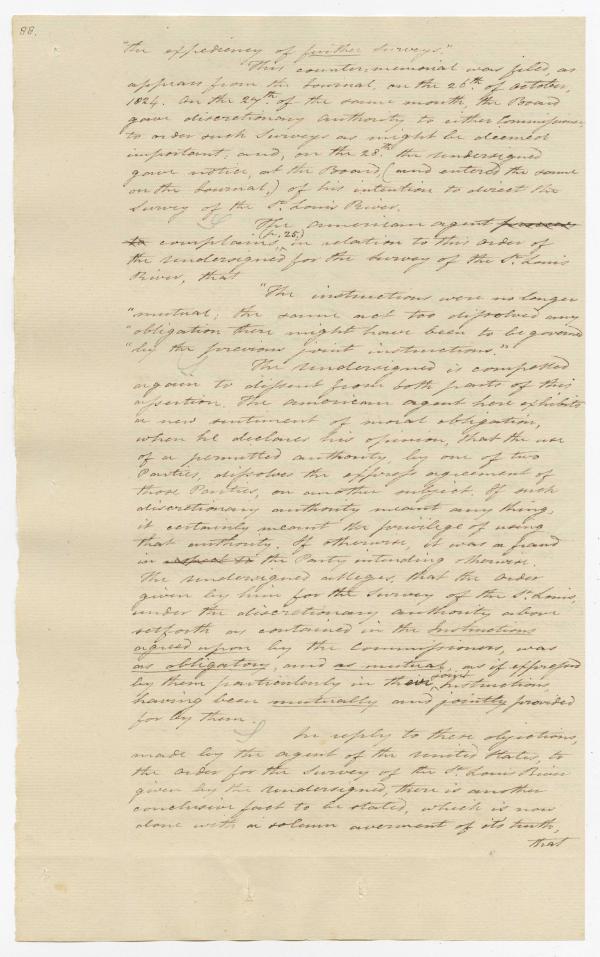 88.
"the expediency of further Surveys."
This counter-memorial was filed, as
appears from the Journal, on the 26th of October,
1824. On the 27th of the same month, the Board
gave discretionary authority to either Commissioner,
to order such Surveys as might be deemed
important; and, on the 28th the Undersigned
gave notice, at the Board, (and entered the same
on the Journal,) of his intention to direct the
Survey of the St. Louis River.
The American agent
to complains, (p. 25,) in relation to this order of
the Undersigned for the Survey of the St. Louis
River, that
"The instructions were no longer
"mutual; the same act too dissolved any
"obligation there might have been to be governed
"by the previous joint instructions."
The Undersigned is compelled
again to dissent from both parts of this
assertion. The American agent here exhibits
a new sentiment of moral obligation,
when he declares his opinion, that the use
of a permitted authority, by one of two
Parties, dissolves the express agreement of
those Parties, on another subject. If such
discretionary authority meant any thing,
it certainly meant the privilege of using
that authority. If otherwise, it was a fraud
in respect to the Party intending otherwise.
The Undersigned alleges, that the order
given by him for the Survey of the St. Louis,
under the discretionary authority above
setforth as contained in the Instructions
agreed upon by the Commissioners, was
as obligatory, and as mutual, as if expressed
by them particularly in their joint Instructions,
having been mutually and jointly provided
for by them.
In reply to these objections,
made by the agent of the United States, to
the order for the Survey of the St. Louis River
given by the Undersigned, there is another
conclusive fact to be stated, which is now
done with a solemn averment of its truth,
that